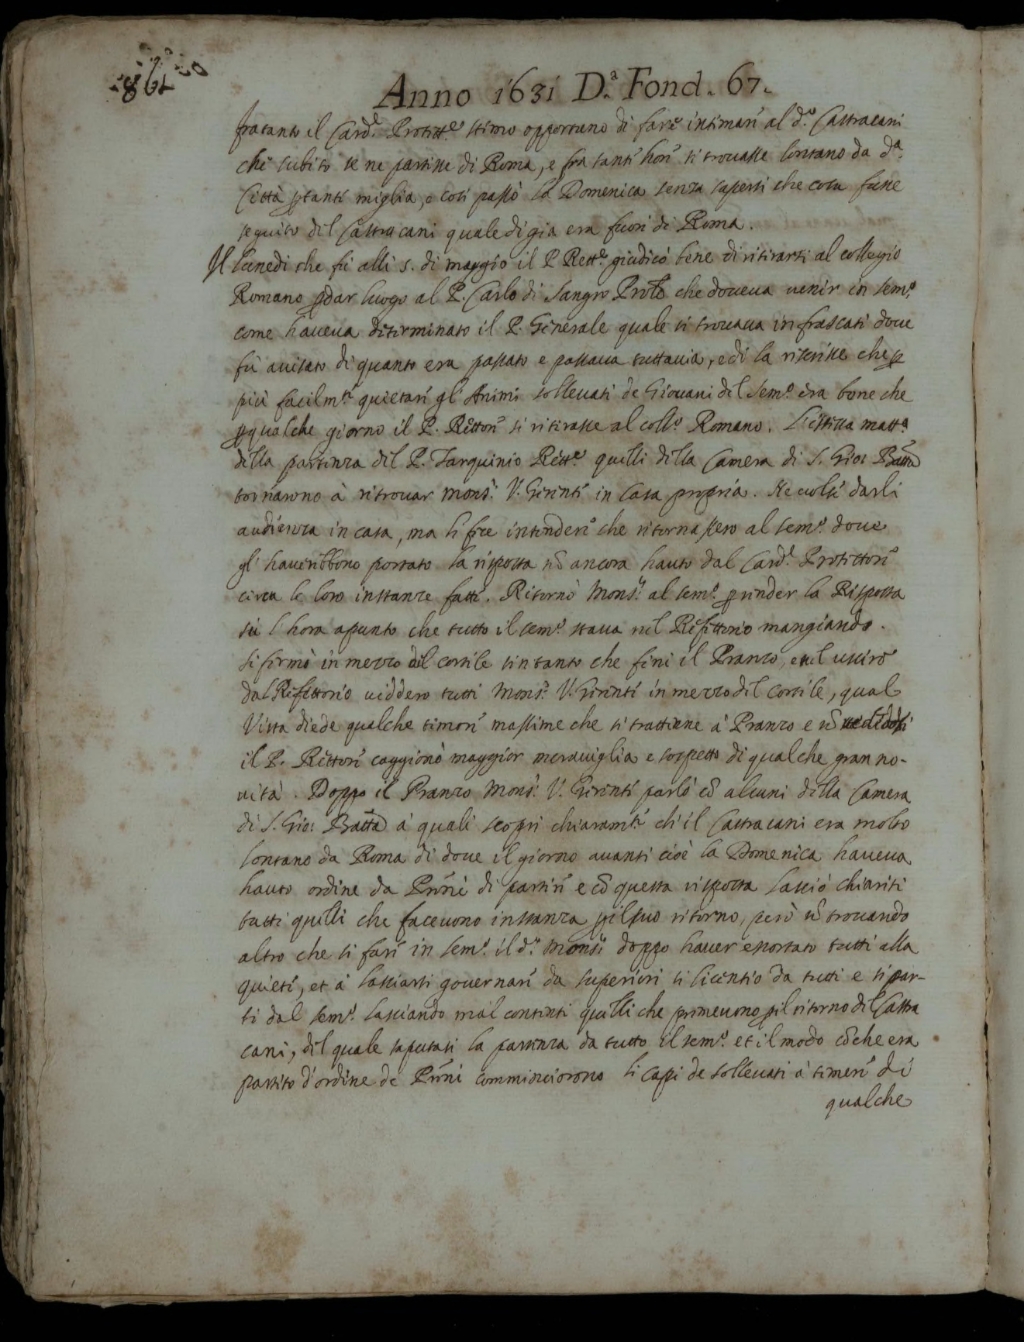 Anno 1631 D.ª Fond. 67.
fratanto il Card.l Protett.e stimò opportuno di fare intimare al d.o Castracani
che subito se ne partisse di Roma, e fra tante hore si trovasse lontano da d.ª
Città p tante miglia, e così passò la Domenica senza sapersi che cosa fusse
seguito del Castracani quale di già era fuori di Roma.
Il lunedi che fù alli 5. di maggio il P. Rett.e giudicò bene di ritirarsi al collegio
Romano p dar luogo al P. Carlo di Sangro Prole che doveva venir in sem.o
come haveva determinato il P. Generale quale si trovava in frascati dove
fù avisato di quanto era passato e passava tuttavia, e di la rescrisse che p
più facilm.te quietare gl'Animi sollevati de Giovani del Sem.o era bene che
p qualche giorno il P. Rettore si ritirasse al coll.o Romano. L'istessa matt.ª
della partenza del P. Tarquinio Rett.e quelli della Camera di S. Gio: Batta
tornarono à ritrovar Mons.r V. Gerente in Casa propria. Ne volse darli
audienza in casa, ma li fece intendere che ritornassero al sem.o dove
gl'haverebbono portato la risposta nō ancora hauto dal Card.l Protettore
circa le loro instanze fatte. Ritornò Mons.r al sem.o p render la Risposta
sù l'hora apunto che tutto il sem.o stava nel Refettorio mangiando.
Si fermò in mezzo del cortile sin tanto che finì il Pranzo, e nel uscire
dal Refettorio viddero tutti Mons.r V. Gerente in mezzo del Cortile, qual
Vista diede qualche timore massime che si trattiene à Pranzo e nō vedēdosi
il P. Rettore caggionò maggior meraviglia e sospetto di qualche gran no-
vità. Doppo il Pranzo Mons.r V. Gerente parlò cō alcuni della Camera
di S. Gio: Batta à quali scoprì chiaram.te ch'il Castracani era molto
lontano da Roma di dove il giorno avanti cioè la Domenica haveva
hauto ordine da Prōni di partire e cō questa risposta lasciò chiariti
tutti quelli che facevono instanza p il suo ritorno, però nō trovando
altro che si fare in sem.o il d.o Mons.r doppo haver esortato tutti alla
quiete, et à lasciarsi governare da superiori si licentiò da tutti e si par-
tì dal sem.o lasciando mal contenti quelli che premevono p il ritorno del Castra
cani, del quale saputasi la partenza da tutto il sem.o et il modo cō che era
partito d'ordine de Prōni comminciorono li capi de sollevati à temere di
qualche